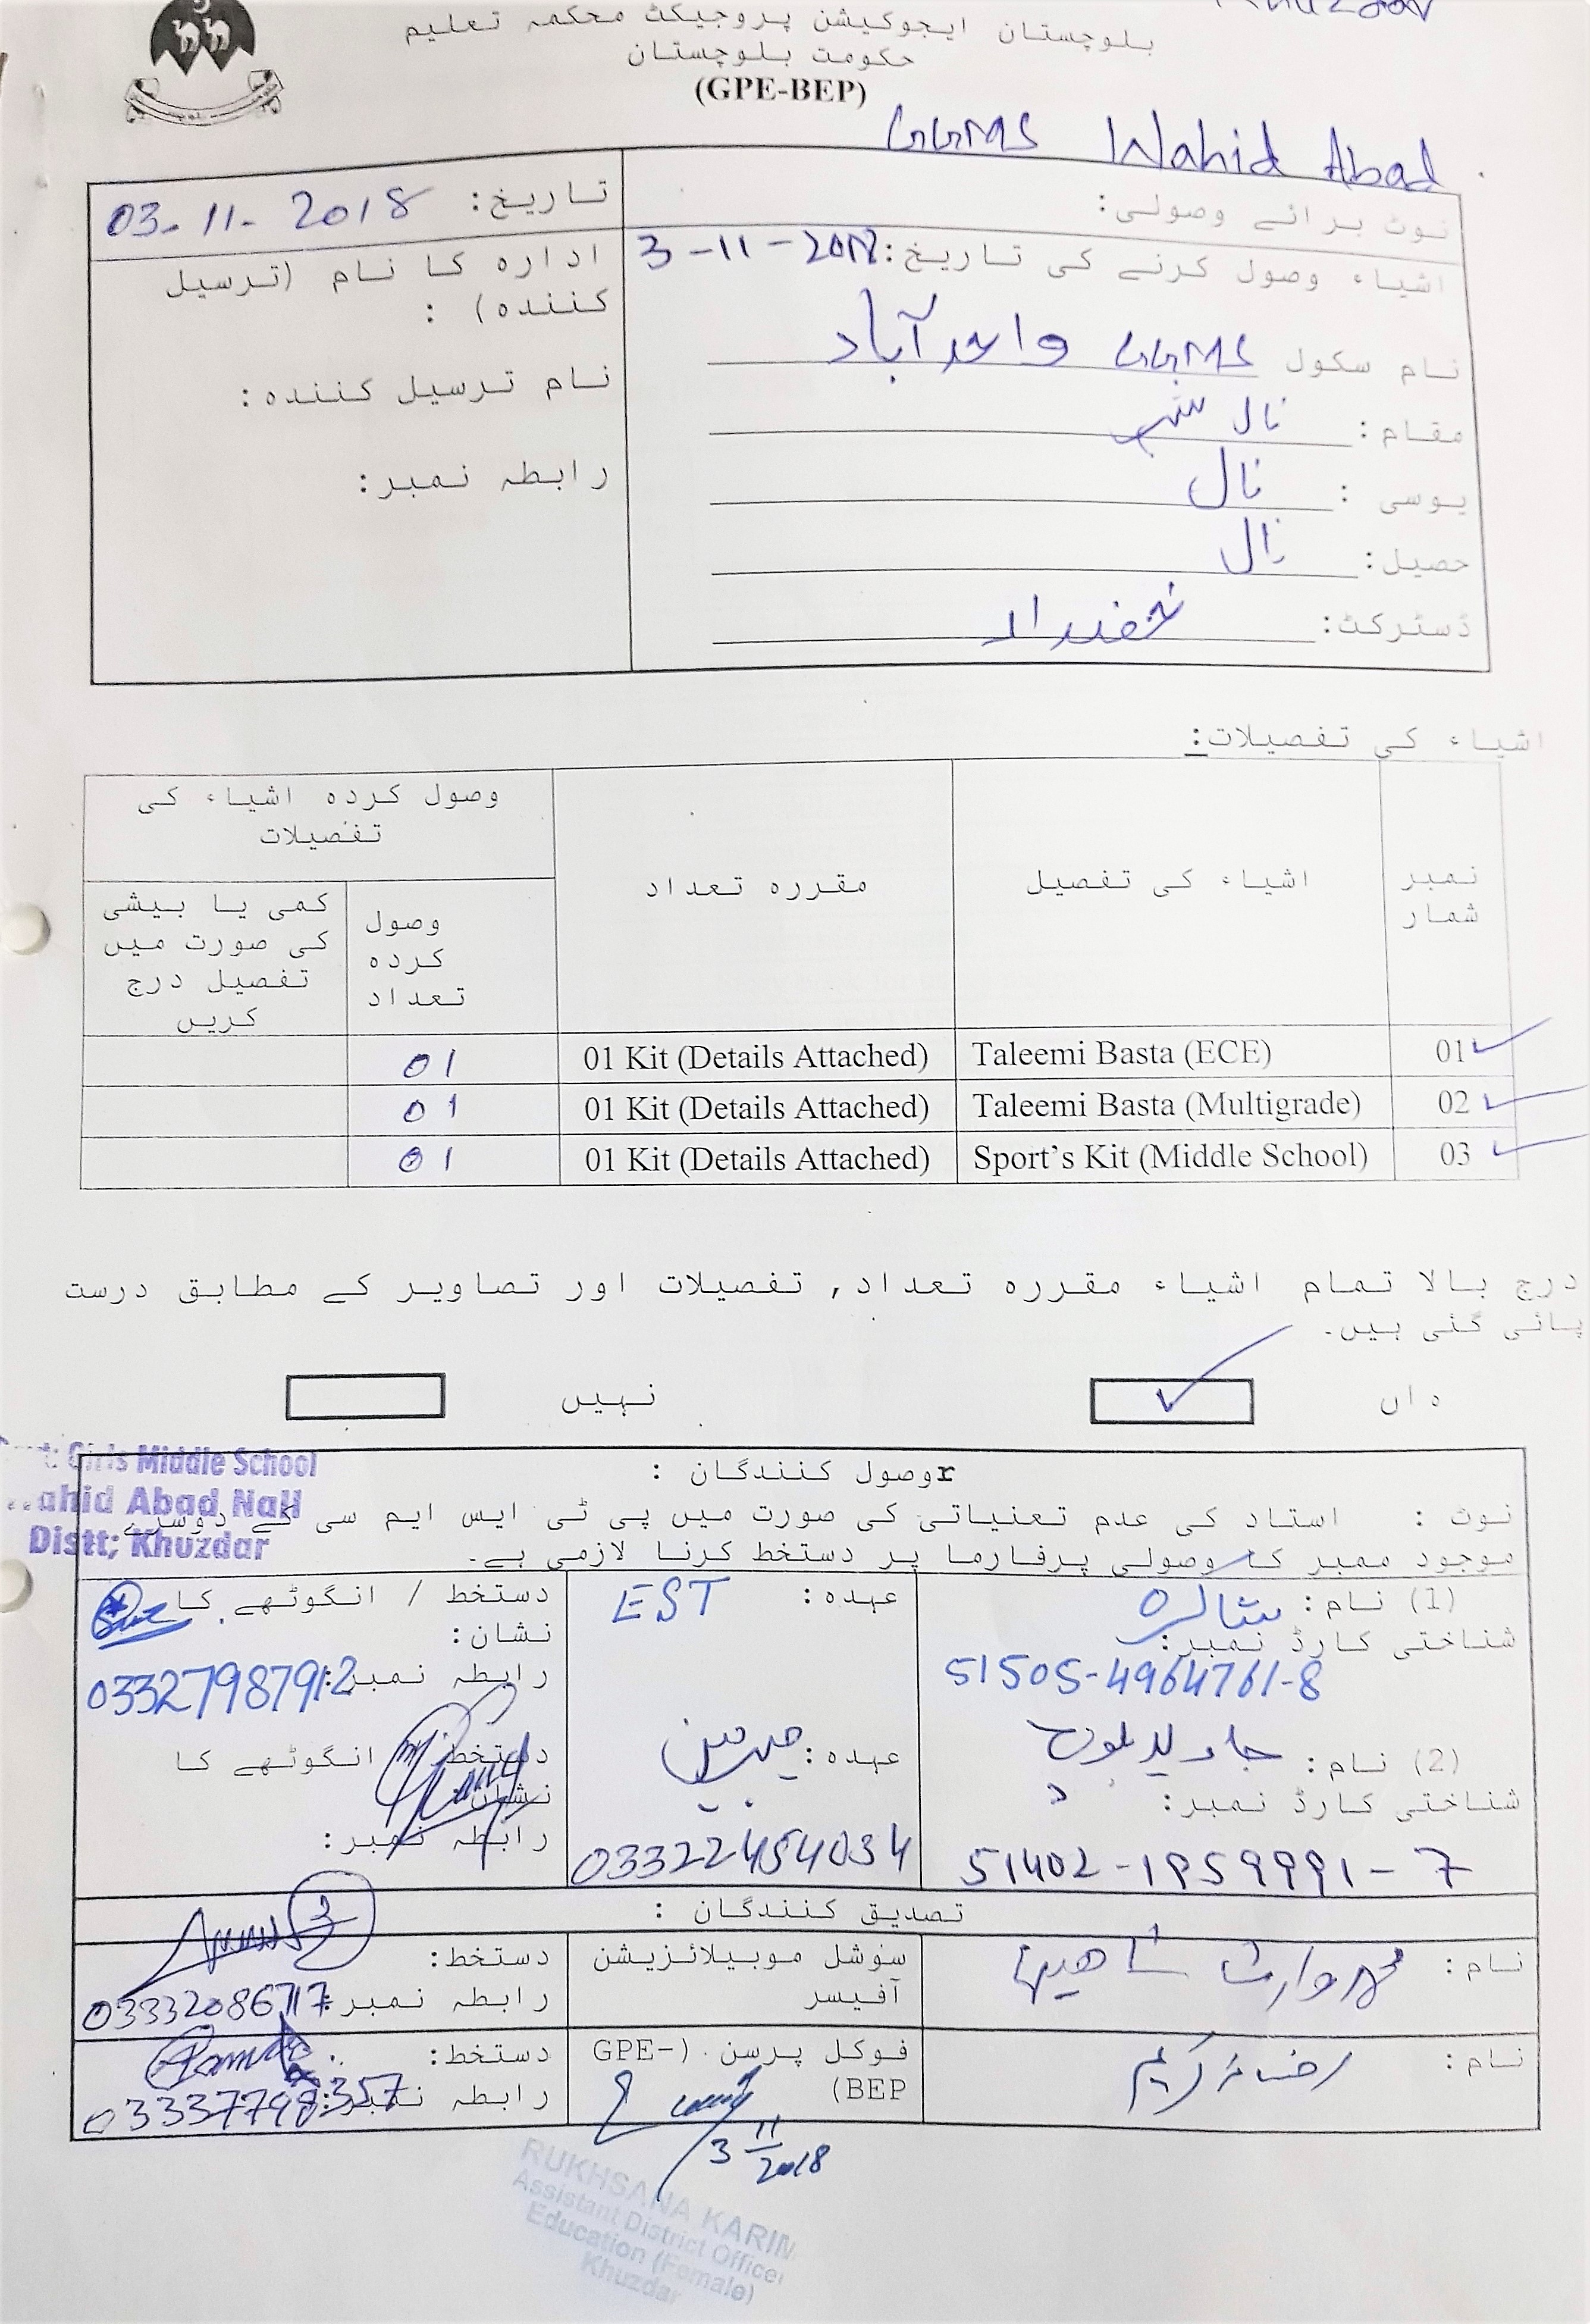 بلوچستان ایجوکیشن پروجیکٹ محکمہ تعلیم
حکومت بلوچستان
(GPE-BEP)
GGMS Wahid Abad
نوٹ برائے وصولی:
تاریخ: 03-11-2018
اشیاء وصول کرنے کی تاریخ: 3-11-2018
ادارہ کا نام (ترسیل کنندہ) :
نام سکول GGMS واحد آباد
نام ترسیل کنندہ:
مقام: نال شہر
رابطہ نمبر:
یوسی : نال
حصیل: نال
ڈسٹرکٹ: خضدار
اشیاء کی تفصیلات:
نمبر شمار
اشیاء کی تفصیل
مقررہ تعداد
وصول کردہ اشیاء کی تفصیلات
وصول کردہ تعداد
کمی یا بیشی کی صورت میں تفصیل درج کریں
01 Taleemi Basta (ECE) 01 Kit (Details Attached) 01
02 Taleemi Basta (Multigrade) 01 Kit (Details Attached) 01
03 Sport's Kit (Middle School) 01 Kit (Details Attached) 01
درج بالا تمام اشیاء مقررہ تعداد, تفصیلات اور تصاویر کے مطابق درست
پائی گئی ہیں۔
ہاں ✓ نہیں
Girls Middle School
Wahid Abad Nall
Distt; Khuzdar
rوصول کنندگان :
نوٹ : استاد کی عدم تعنیاتی کی صورت میں پی ٹی ایس ایم سی کے دوسرے
موجود ممبر کا وصولی پرفارما پر دستخط کرنا لازمی ہے۔
(1) نام:
عہدہ: EST
دستخط / انگوٹھے کا نشان:
شناختی کارڈ نمبر:
51505-4964761-8
رابطہ نمبر:
(2) نام: جاوید بلوچ
عہدہ: چیرمین
دستخط / انگوٹھے کا نشان
شناختی کارڈ نمبر:
51402-1959991-7
03322454034
رابطہ نمبر:
تصدیق کنندگان :
نام: محمد وارث شاھین
سوشل موبیلائزیشن آفیسر
دستخط:
رابطہ نمبر:
نام: رخسانہ کریم
فوکل پرسن (GPE-BEP)
دستخط:
رابطہ نمبر:
3 11 2018
RUKHSANA KARIM
Assistant District Officer
Education (Female)
Khuzdar